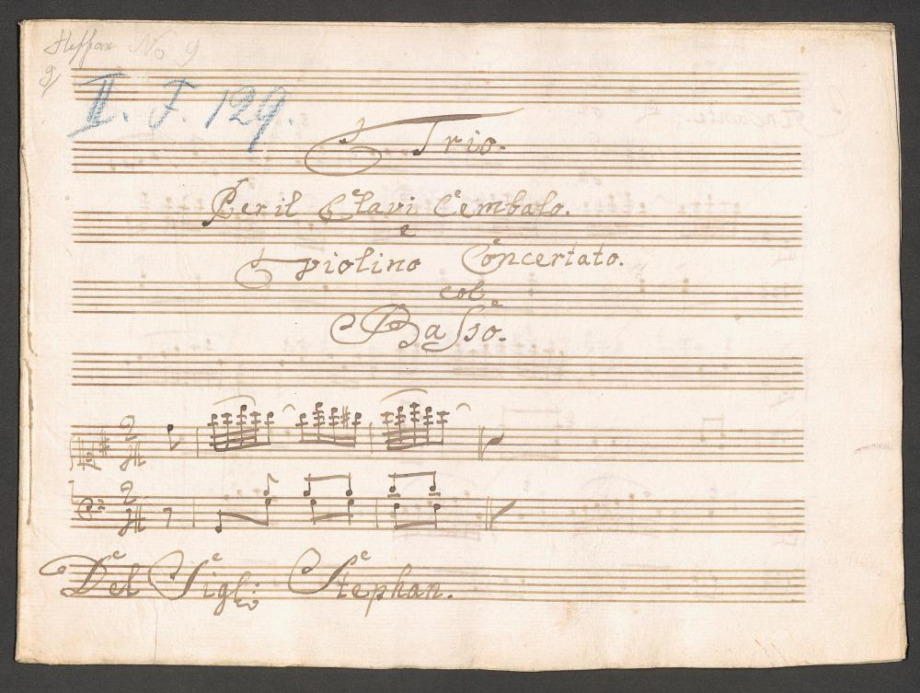 Steffan No 9
9
II. J. 129.
Trio.
Per il Clavi Cembalo.
e
violino Concertato.
col
Basso.
Del Sigl:
Stephan.